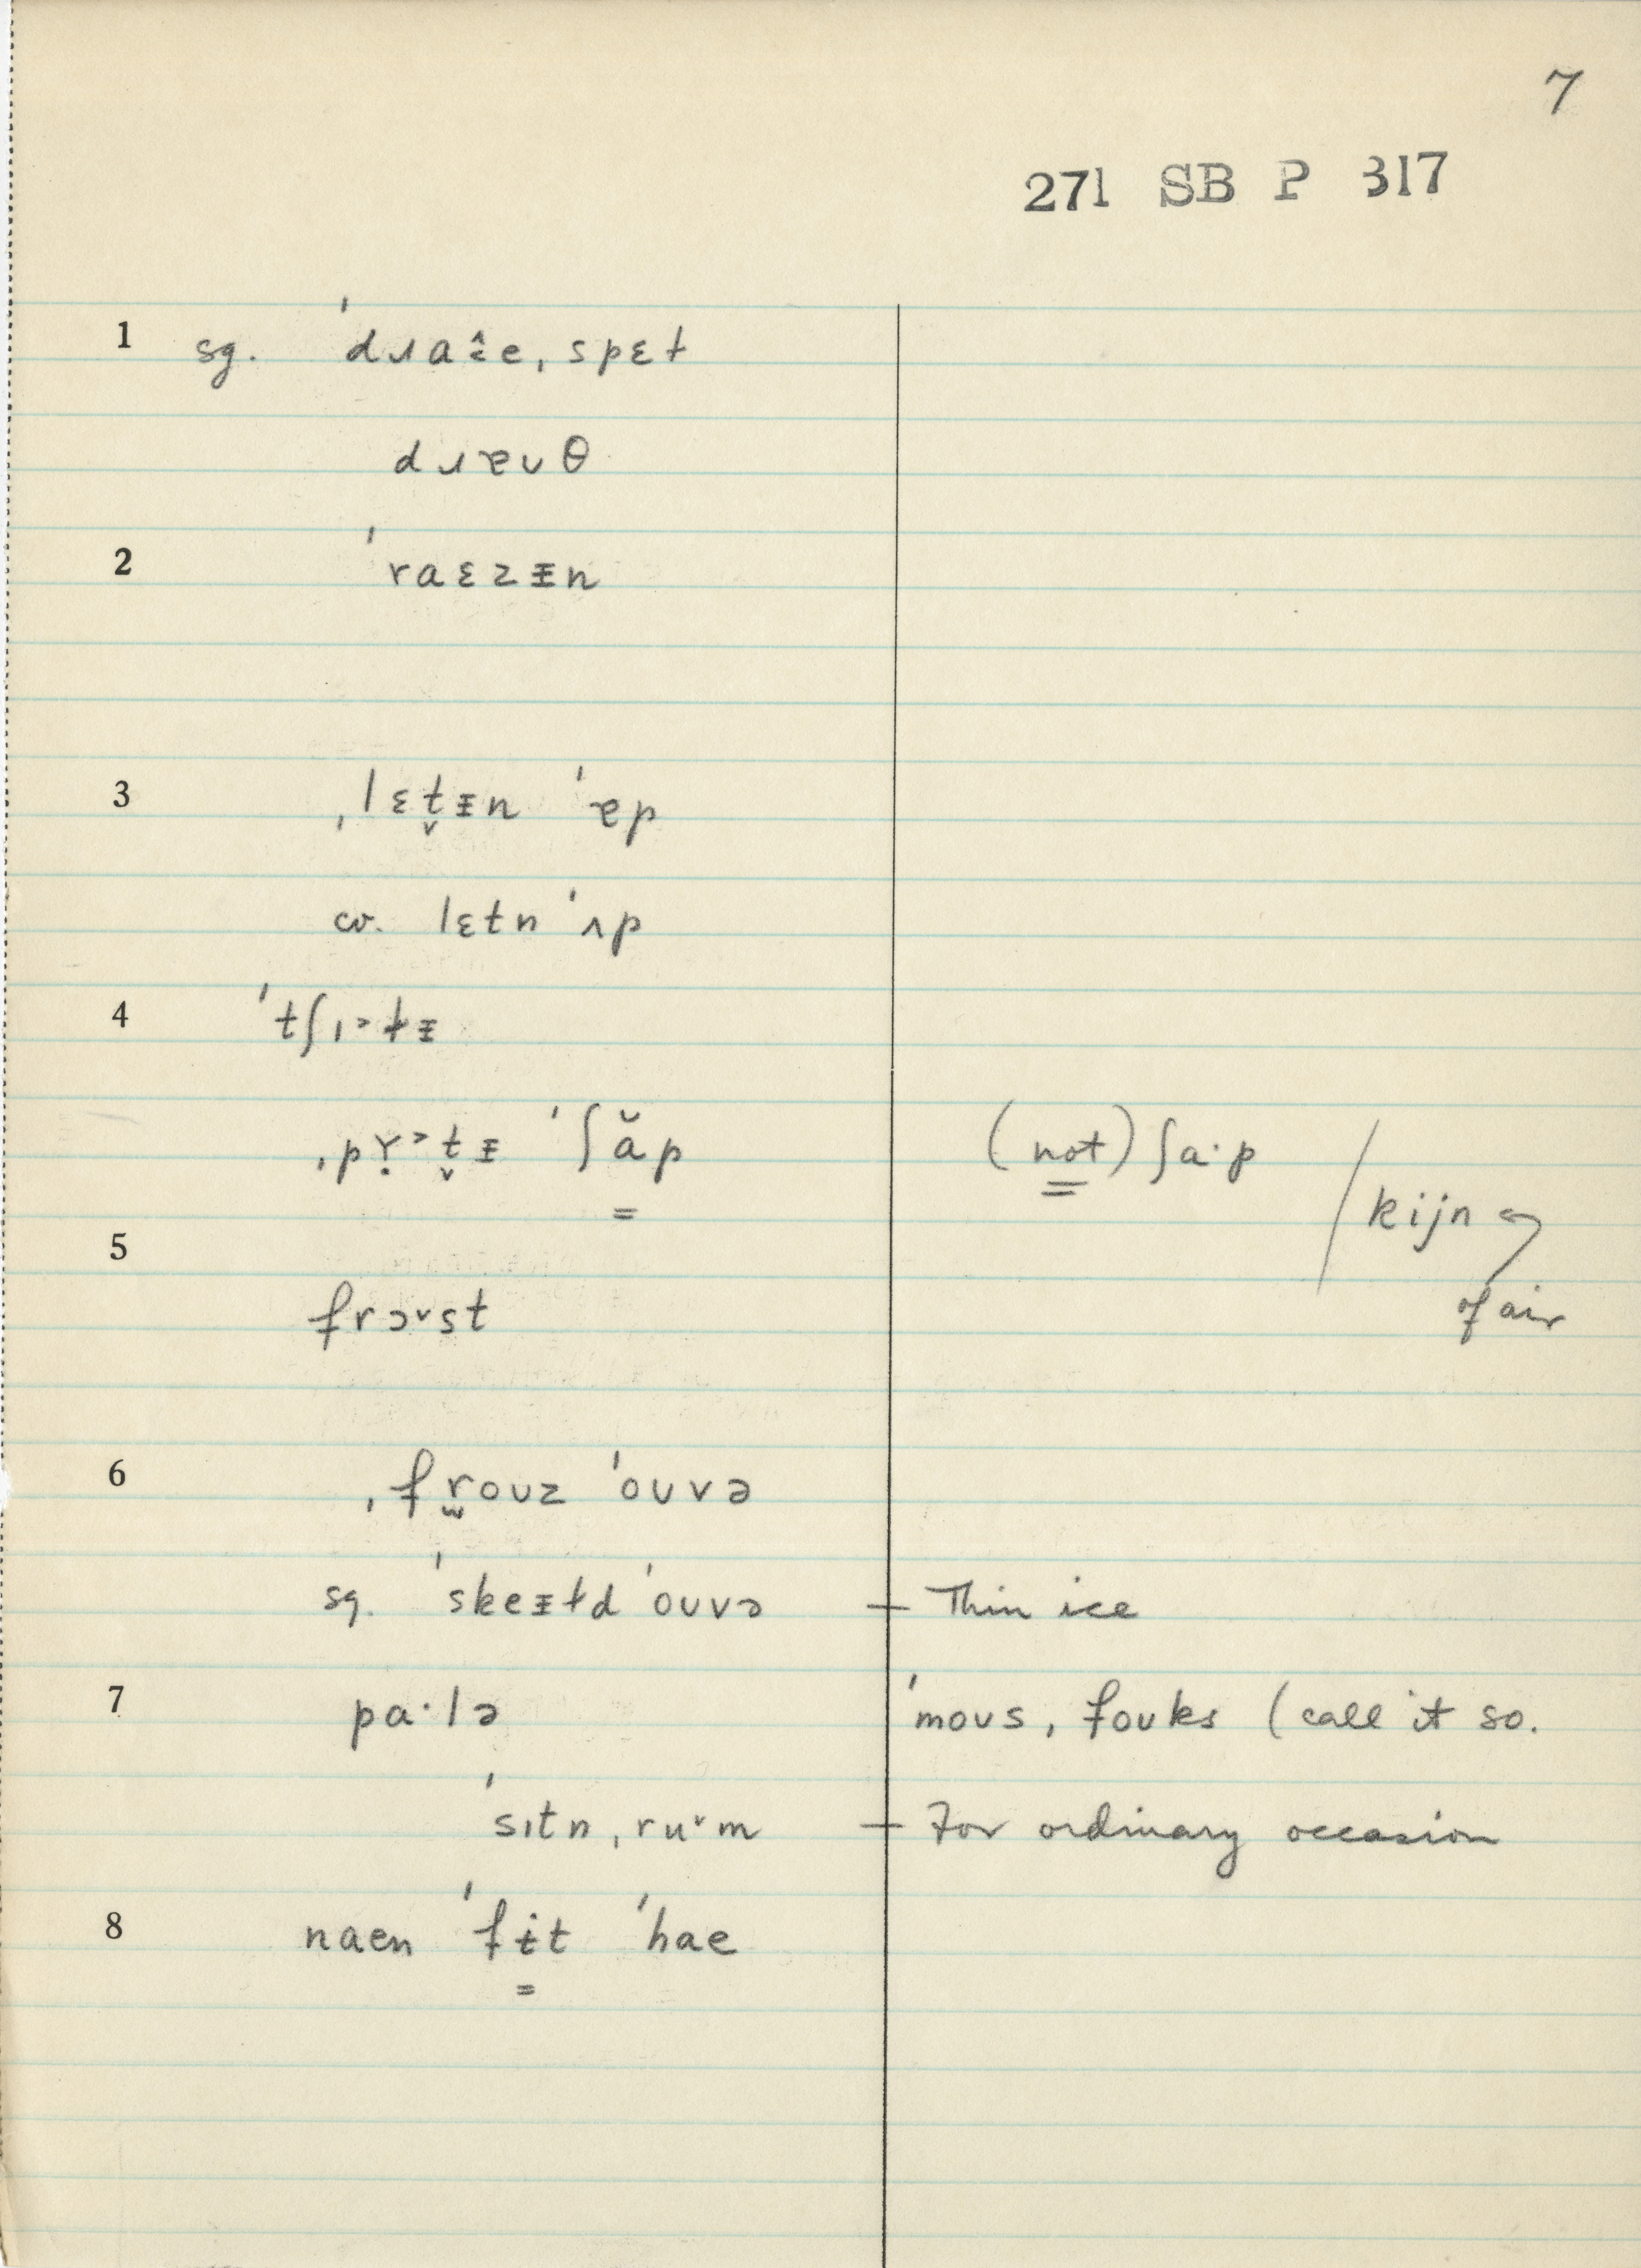 7
271 SB P 317
1 sg. ˈdɹaɛ̂e ˌspɛɫ
dɹɐʊθ
2 ˈraɛzᵻn
3 ˌlɛt̬ᵻn ˈɐp
cr. lɛtn ˈʌp
4 ˈtʃɪ˃ɫᵻ
ˌpɤ̣˃t̬ᵻ ˈʃăp (not) ʃa·p / kijn
5 of air
frɔ˅st
6 ˌfr̫oʊz ˈoʊvə
sg. ˈskeᵻɫd ˈoʊvə + Thin ice
7 pa·lə ˈmoʊs ˌfoʊks (call it so.
ˈsɪtn ˌru˅m + For ordinary occasion
8 naen ˈfɨt ˈhae